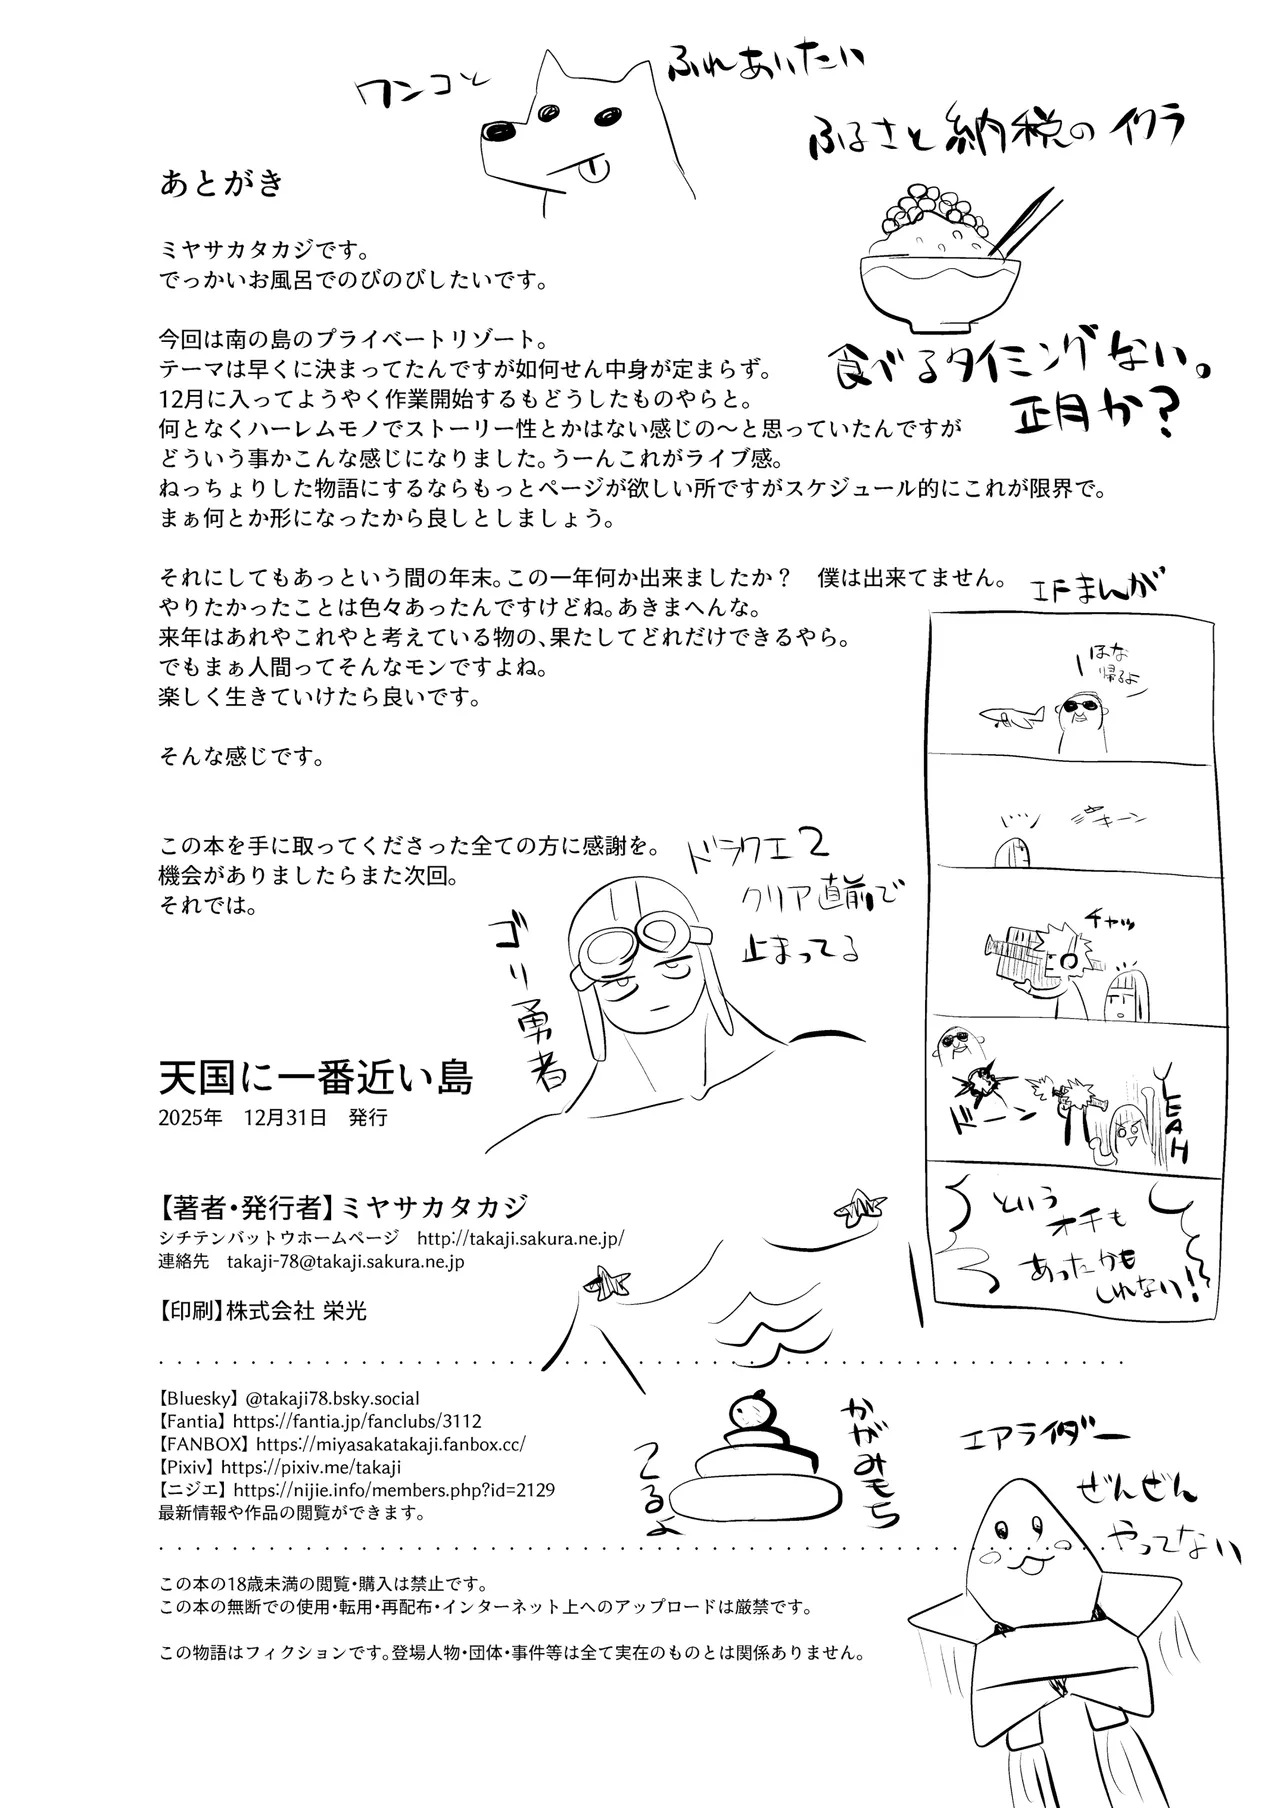 ワンコと
ふれあいたい
ふるさと納税のイクラ
食べるタイミングない。
正月か?
あとがき
ミヤサカタカジです。
でっかいお風呂でのびのびしたいです。
今回は南の島のプライベートリゾート。
テーマは早くに決まってたんですが如何せん中身が定まらず。
12月に入ってようやく作業開始するもどうしたものやらと。
何となくハーレムモノでストーリー性とかはない感じの〜と思っていたんですが
どういう事かこんな感じになりました。うーんこれがライブ感。
ねっちょりした物語にするならもっとページが欲しい所ですがスケジュール的にこれが限界で。
まぁ何とか形になったから良しとしましょう。
それにしてもあっという間の年末。この一年何か出来ましたか？　僕は出来てません。
やりたかったことは色々あったんですけどね。あきまへんな。
来年はあれやこれやと考えている物の、果たしてどれだけできるやら。
でもまぁ人間ってそんなモンですよね。
楽しく生きていけたら良いです。
そんな感じです。
この本を手に取ってくださった全ての方に感謝を。
機会がありましたらまた次回。
それでは。
IFまんが
ほな
帰るよ
キーン
チャッ
ドーン
YEAH
という
オチも
あったかも
しれない!
ドラクエ2
クリア直前で
止まってる
ゴリ勇者
天国に一番近い島
2025年　12月31日　発行
【著者・発行者】ミヤサカタカジ
シチテンバットウホームページ　http://takaji.sakura.ne.jp/
連絡先　takaji-78@takaji.sakura.ne.jp
【印刷】株式会社 栄光
【Bluesky】@takaji78.bsky.social
【Fantia】https://fantia.jp/fanclubs/3112
【FANBOX】https://miyasakatakaji.fanbox.cc/
【Pixiv】https://pixiv.me/takaji
【ニジエ】https://nijie.info/members.php?id=2129
最新情報や作品の閲覧ができます。
かがみもち
エアライダー
ぜんぜん
やってない
この本の18歳未満の閲覧・購入は禁止です。
この本の無断での使用・転用・再配布・インターネット上へのアップロードは厳禁です。
この物語はフィクションです。登場人物・団体・事件等は全て実在のものとは関係ありません。